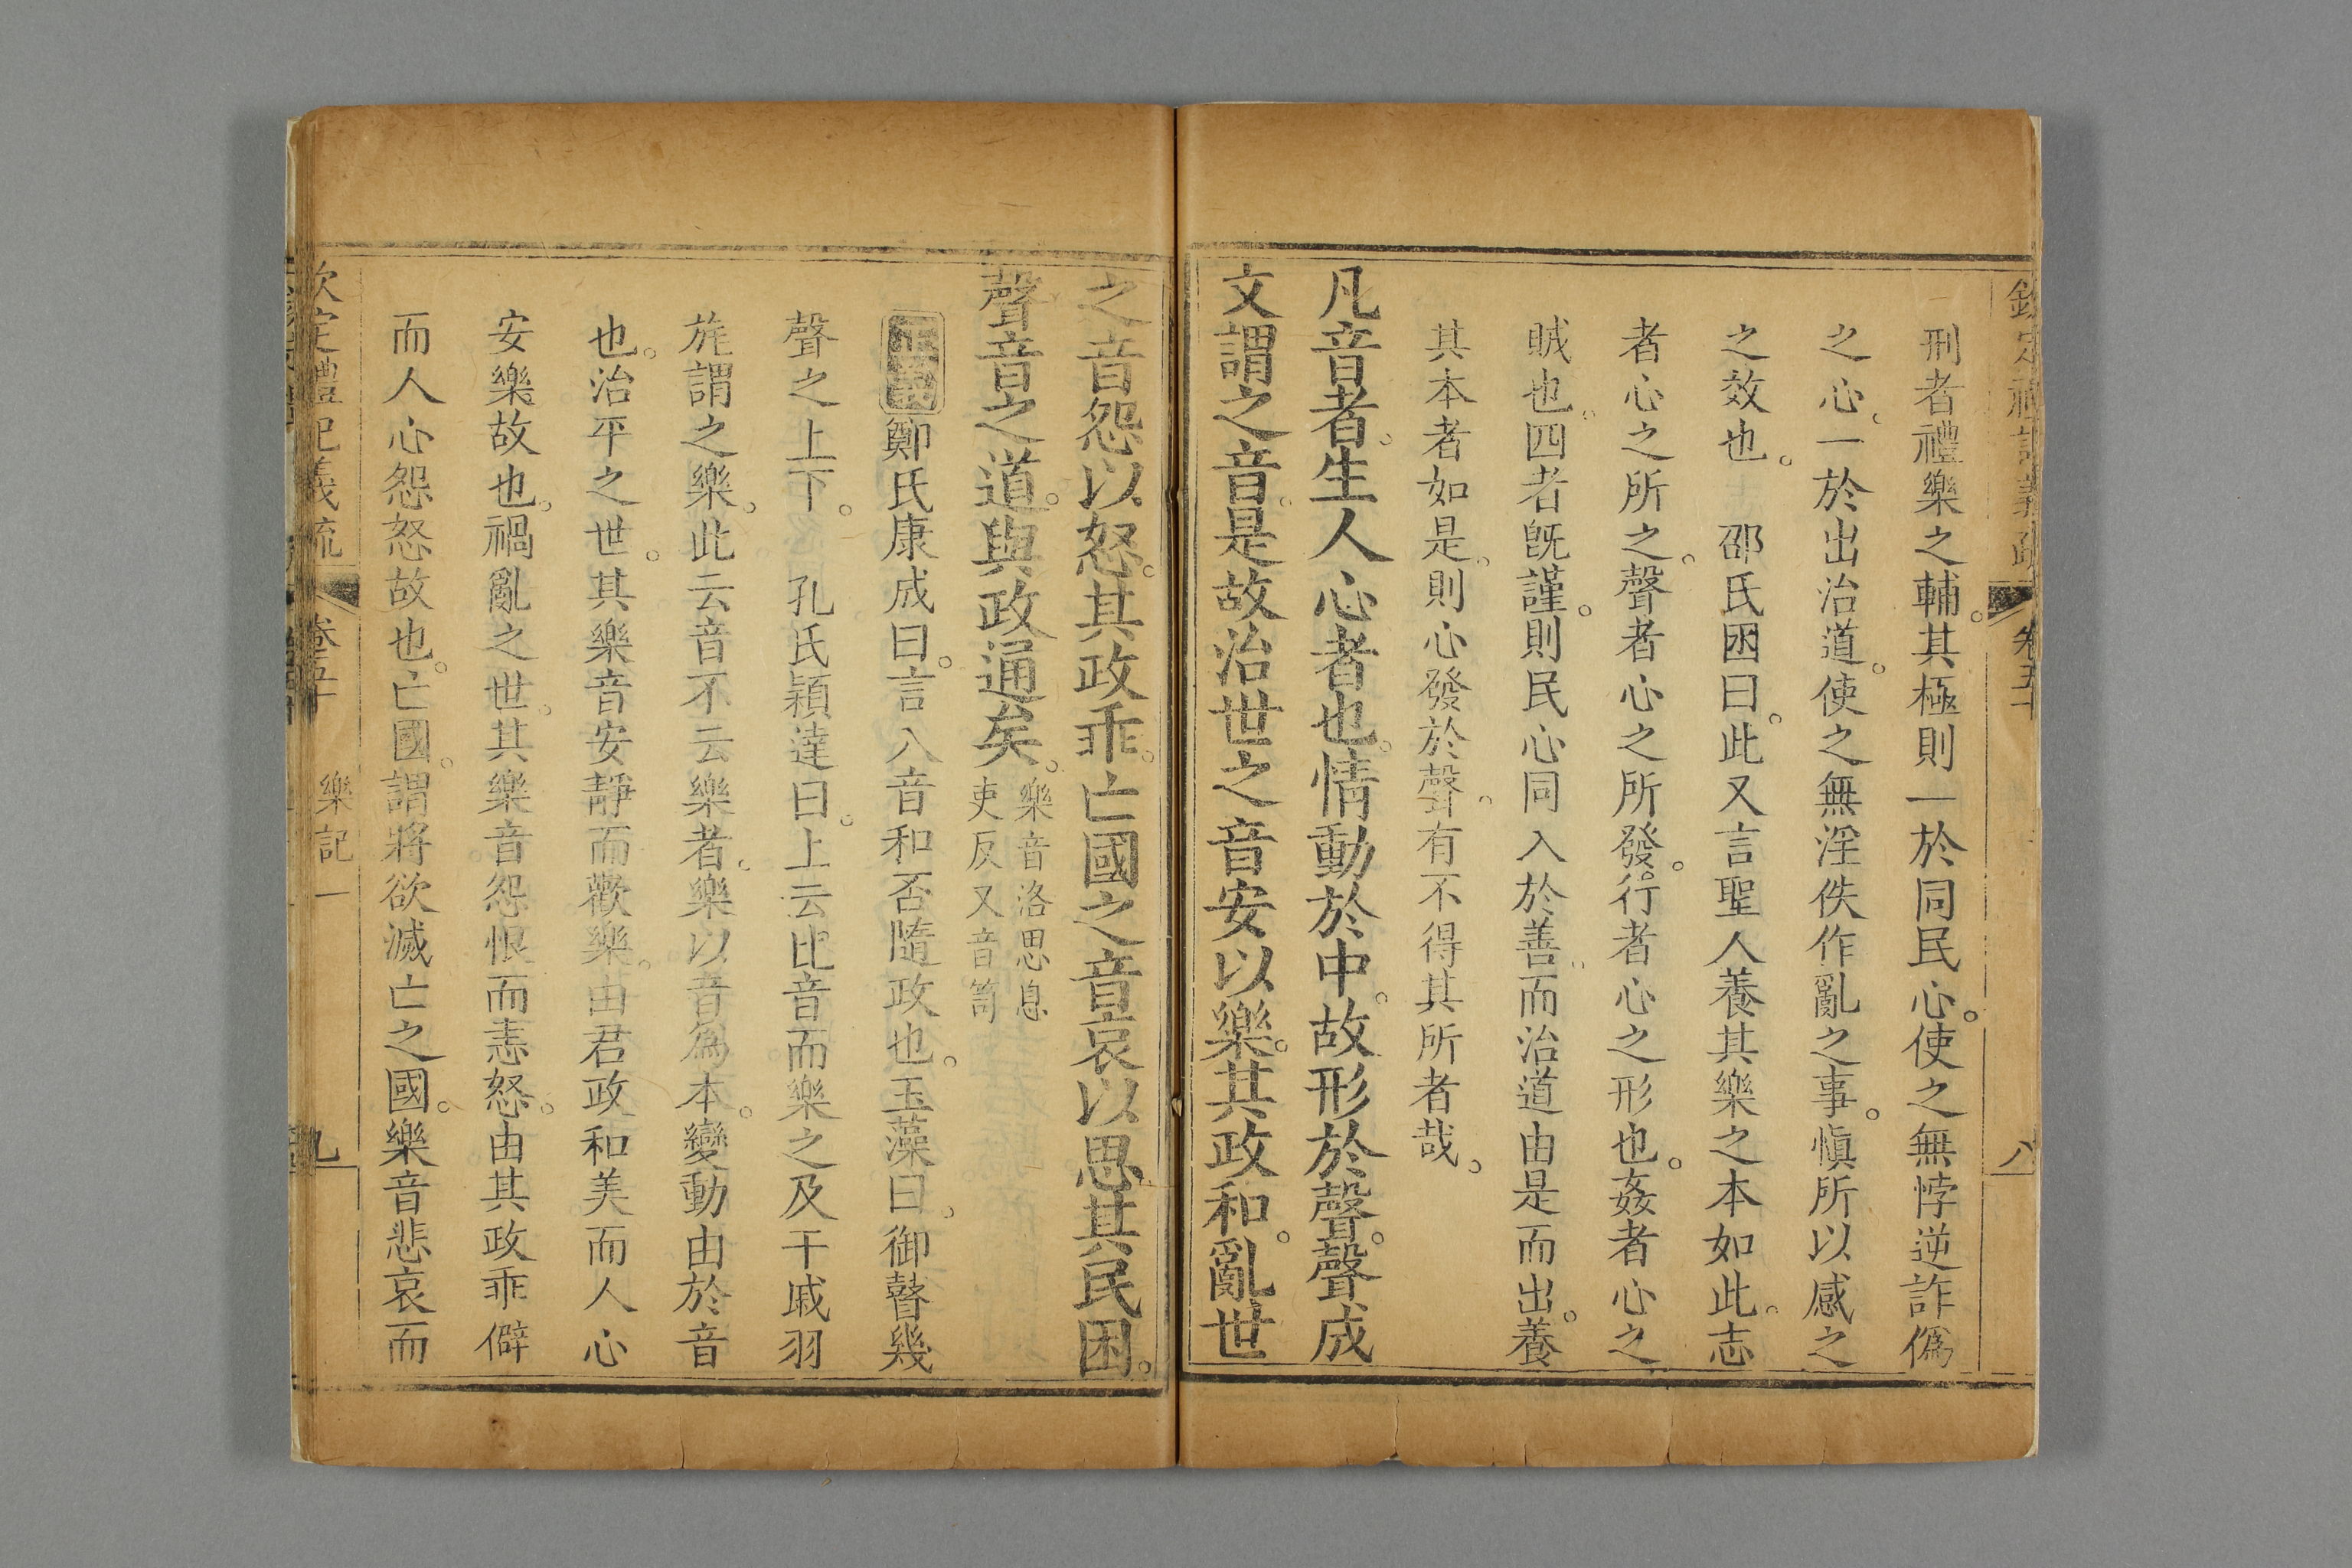 欽定禮記義疏 卷五十 八
刑者禮樂之輔。其極則一於同民心。使之無悖逆詐僞
之心。一於出治道。使之無淫佚作亂之事。愼所以感之
之效也。 邵氏囦曰。此又言聖人養其樂之本如此。志
者心之所之。聲者心之所發。行者心之形也。姦者心之
賊也。四者旣謹。則民心同入於善。而治道由是而出。養
其本者如是。則心發於聲。有不得其所者哉。
凡音者。生人心者也。情動於中。故形於聲。聲成
文謂之音。是故治世之音安以樂。其政和。亂世
之音怨以怒。其政乖。亡國之音哀以思其民困。
聲音之道。與政通矣。樂音洛思息
吏反又音笥
鄭氏康成曰。言八音和否隨政也。玉藻曰。御瞽幾
聲之上下。 孔氏穎達曰。上云比音而樂之及干戚羽
旄謂之樂。此云音不云樂者。樂以音爲本。變動由於音
也。治平之世。其樂音安靜而歡樂。由君政和美而人心
安樂故也。禍亂之世。其樂音怨恨而恚怒。由其政乖僻
而人心怨怒故也。亡國。謂將欲滅亡之國。樂音悲哀而
欽定禮記義疏 卷五十 樂記一 九